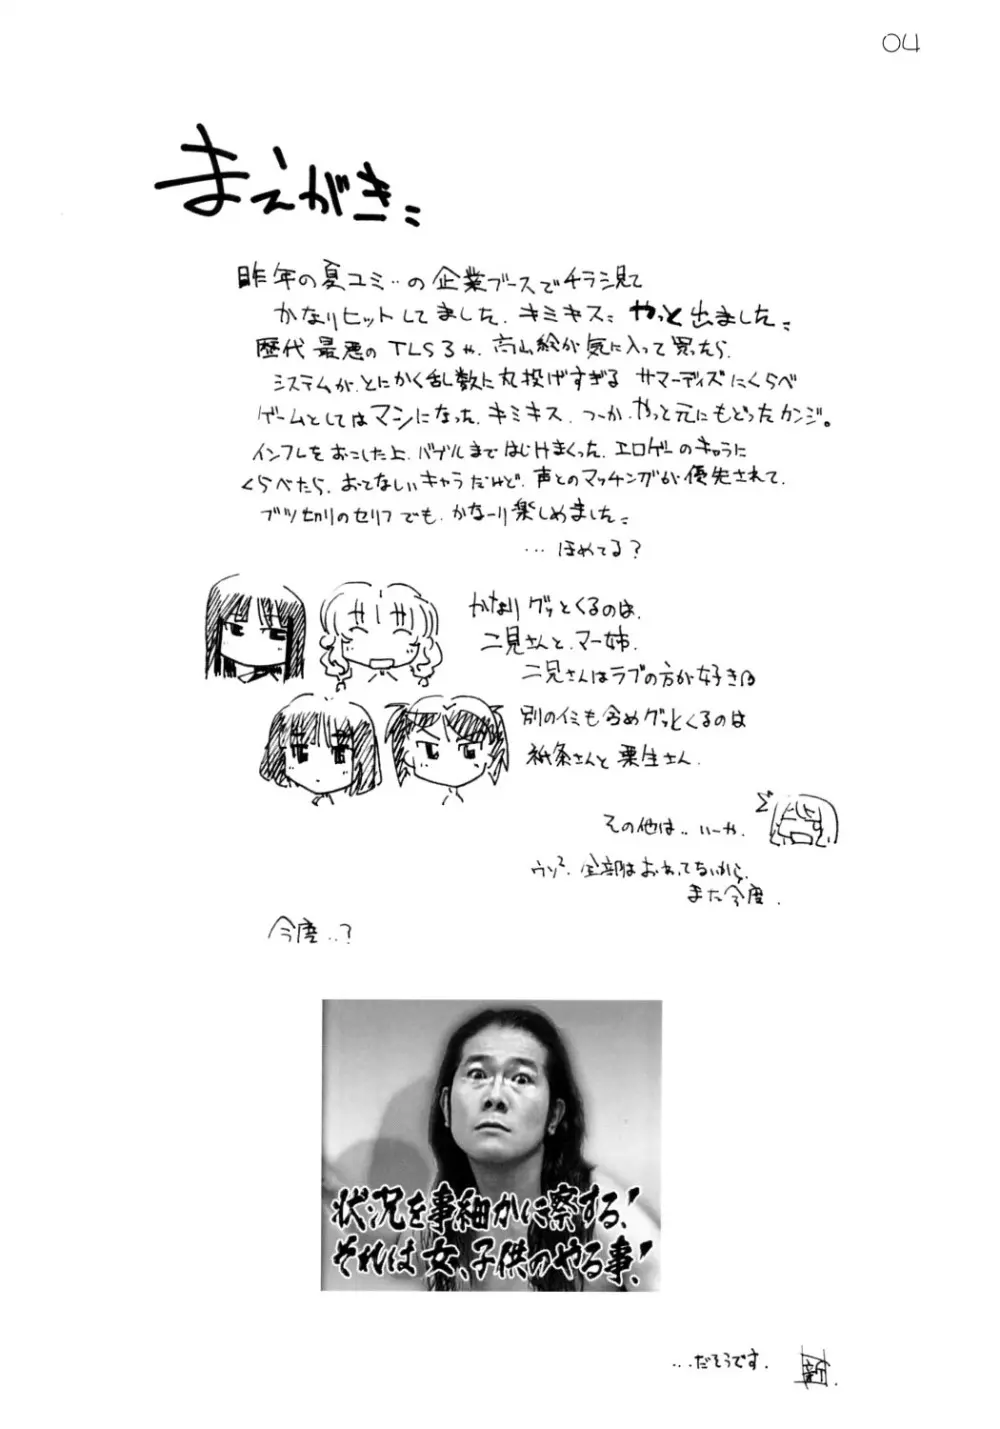 04
まえがき。
昨年の夏コミ‥の企業ブースでチラシ見て
かなりヒットしてました、キミキス。やっと出ました。
歴代最悪のTLS3や、高山絵が気に入って買ったら、
システムが、とにかく乱数に丸投げすぎるサマーデイズにくらべ
ゲームとしてはマシになった、キミキス、つーか、やっと元にもどったカンジ。
インフレをおこした上、バグルまではじけまくった、エロゲーのキャラに
くらべたら、おとなしいキャラだけど、声とのマッチングが優先されて、
ブツ切りのセリフでも、かなーり楽しめました。
…ほめてる?
かなりグッとくるのは、
二見さんと、マー姉、
二見さんはラブの方が好きな
別のイミも含めグッとくるのは
祇条さんと栗生さん。
その他は‥いーや。
ウソ²、全部はおわってないから、
また今度。
今度‥?
状況を事細かに察する!
それは女、子供のやる事!
…だそうです。
新